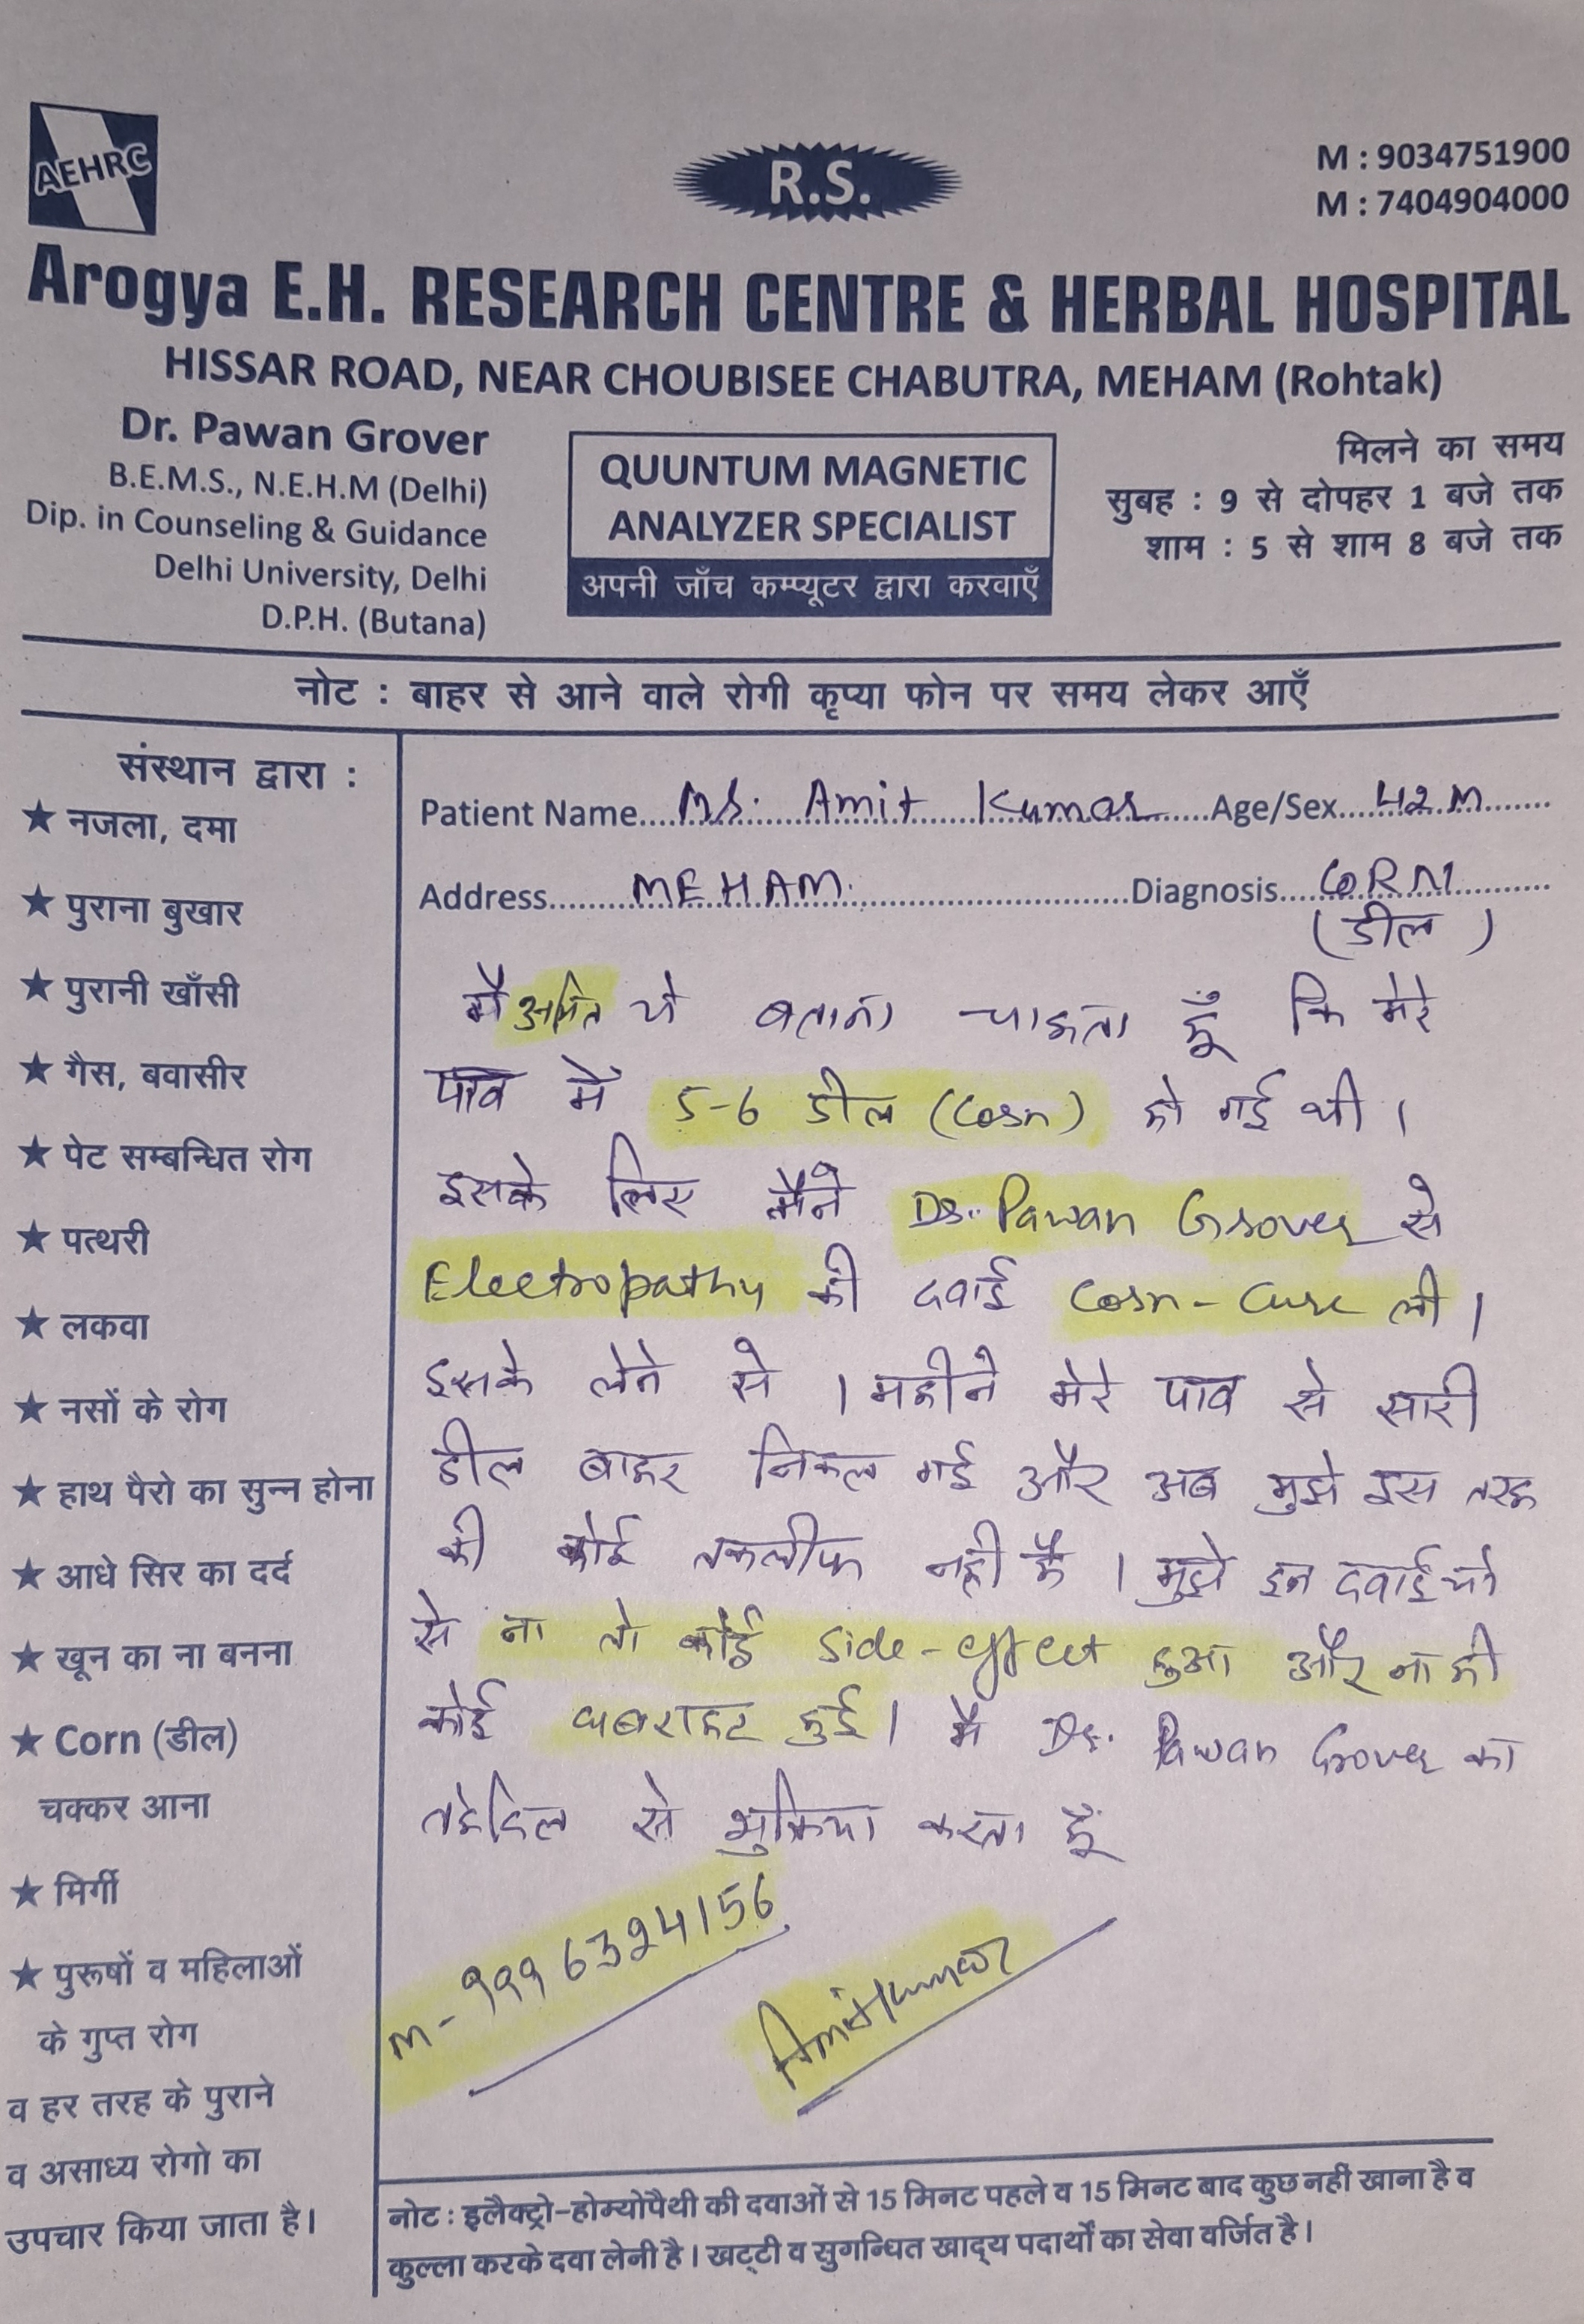 AEHRC
R.S.
M : 9034751900
M : 7404904000
Arogya E.H. RESEARCH CENTRE & HERBAL HOSPITAL
HISSAR ROAD, NEAR CHOUBISEE CHABUTRA, MEHAM (Rohtak)
Dr. Pawan Grover
B.E.M.S., N.E.H.M (Delhi)
Dip. in Counseling & Guidance
Delhi University, Delhi
D.P.H. (Butana)
QUUNTUM MAGNETIC
ANALYZER SPECIALIST
अपनी जाँच कम्प्यूटर द्वारा करवाएँ
मिलने का समय
सुबह : 9 से दोपहर 1 बजे तक
शाम : 5 से शाम 8 बजे तक
नोट : बाहर से आने वाले रोगी कृप्या फोन पर समय लेकर आएँ
संस्थान द्वारा :
★ नजला, दमा
★ पुराना बुखार
★ पुरानी खाँसी
★ गैस, बवासीर
★ पेट सम्बन्धित रोग
★ पत्थरी
★ लकवा
★ नसों के रोग
★ हाथ पैरो का सुन्न होना
★ आधे सिर का दर्द
★ खून का ना बनना
★ Corn (डील)
चक्कर आना
★ मिर्गी
★ पुरूषों व महिलाओं
के गुप्त रोग
व हर तरह के पुराने
व असाध्य रोगो का
उपचार किया जाता है।
Patient Name.... Mr. Amit Kumar ....Age/Sex.... 42 M
Address.... MEHAM. ....Diagnosis.... CORN
(डील)
मै अमित ये बताना चाहता हूँ कि मेरे
पाव में 5-6 डील (Corn) हो गई थी।
इसके लिए मैने Dr. Pawan Grover से
Electropathy की दवाई Corn-Cure ली।
इसके लेने से 1 महीने मेरे पाव से सारी
डील बाहर निकल गई और अब मुझे इस तरह
की कोई तकलीफ नही है। मुझे इन दवाईयो
से ना तो कोई side-effect हुआ और ना ही
कोई घबराहट हुई। मै Dr. Pawan Grover का
तहेदिल से शुक्रिया करता हूँ
M-9996324156
Amit Kumar
नोट : इलैक्ट्रो-होम्योपैथी की दवाओं से 15 मिनट पहले व 15 मिनट बाद कुछ नहीं खाना है व
कुल्ला करके दवा लेनी है। खट्टी व सुगन्धित खाद्य पदार्थों का सेवा वर्जित है।